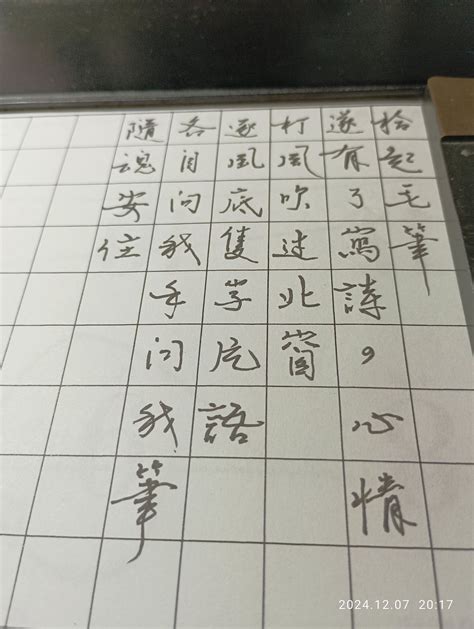 拾起毛筆
遂有了寫詩的心情
打風吹过北窗
逐風底隻字片語
各自问我手问我筆
隨魂安住
2024.12.07 20:17